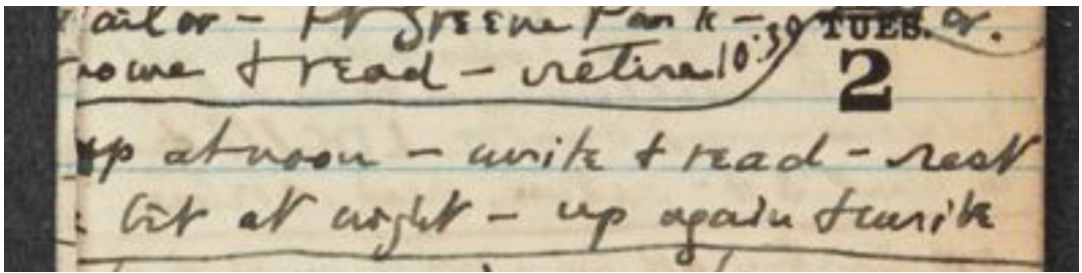 Tailor - to Greene Park - TUES. or.
home & read - retire 10:30 2
up at noon - write & read - rest
bit at night - up again & write